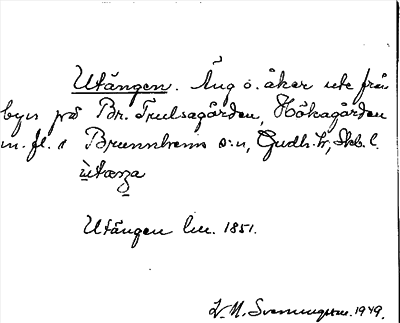 Utängen. Äng o. åker ute från
byn på Br. Trulsagården, Hökagården
m. fl. i Brunnhems s:n, Gudh. hr, Skb. l.
Utängen lm. 1851.
L. M. Svenungsson. 1949.